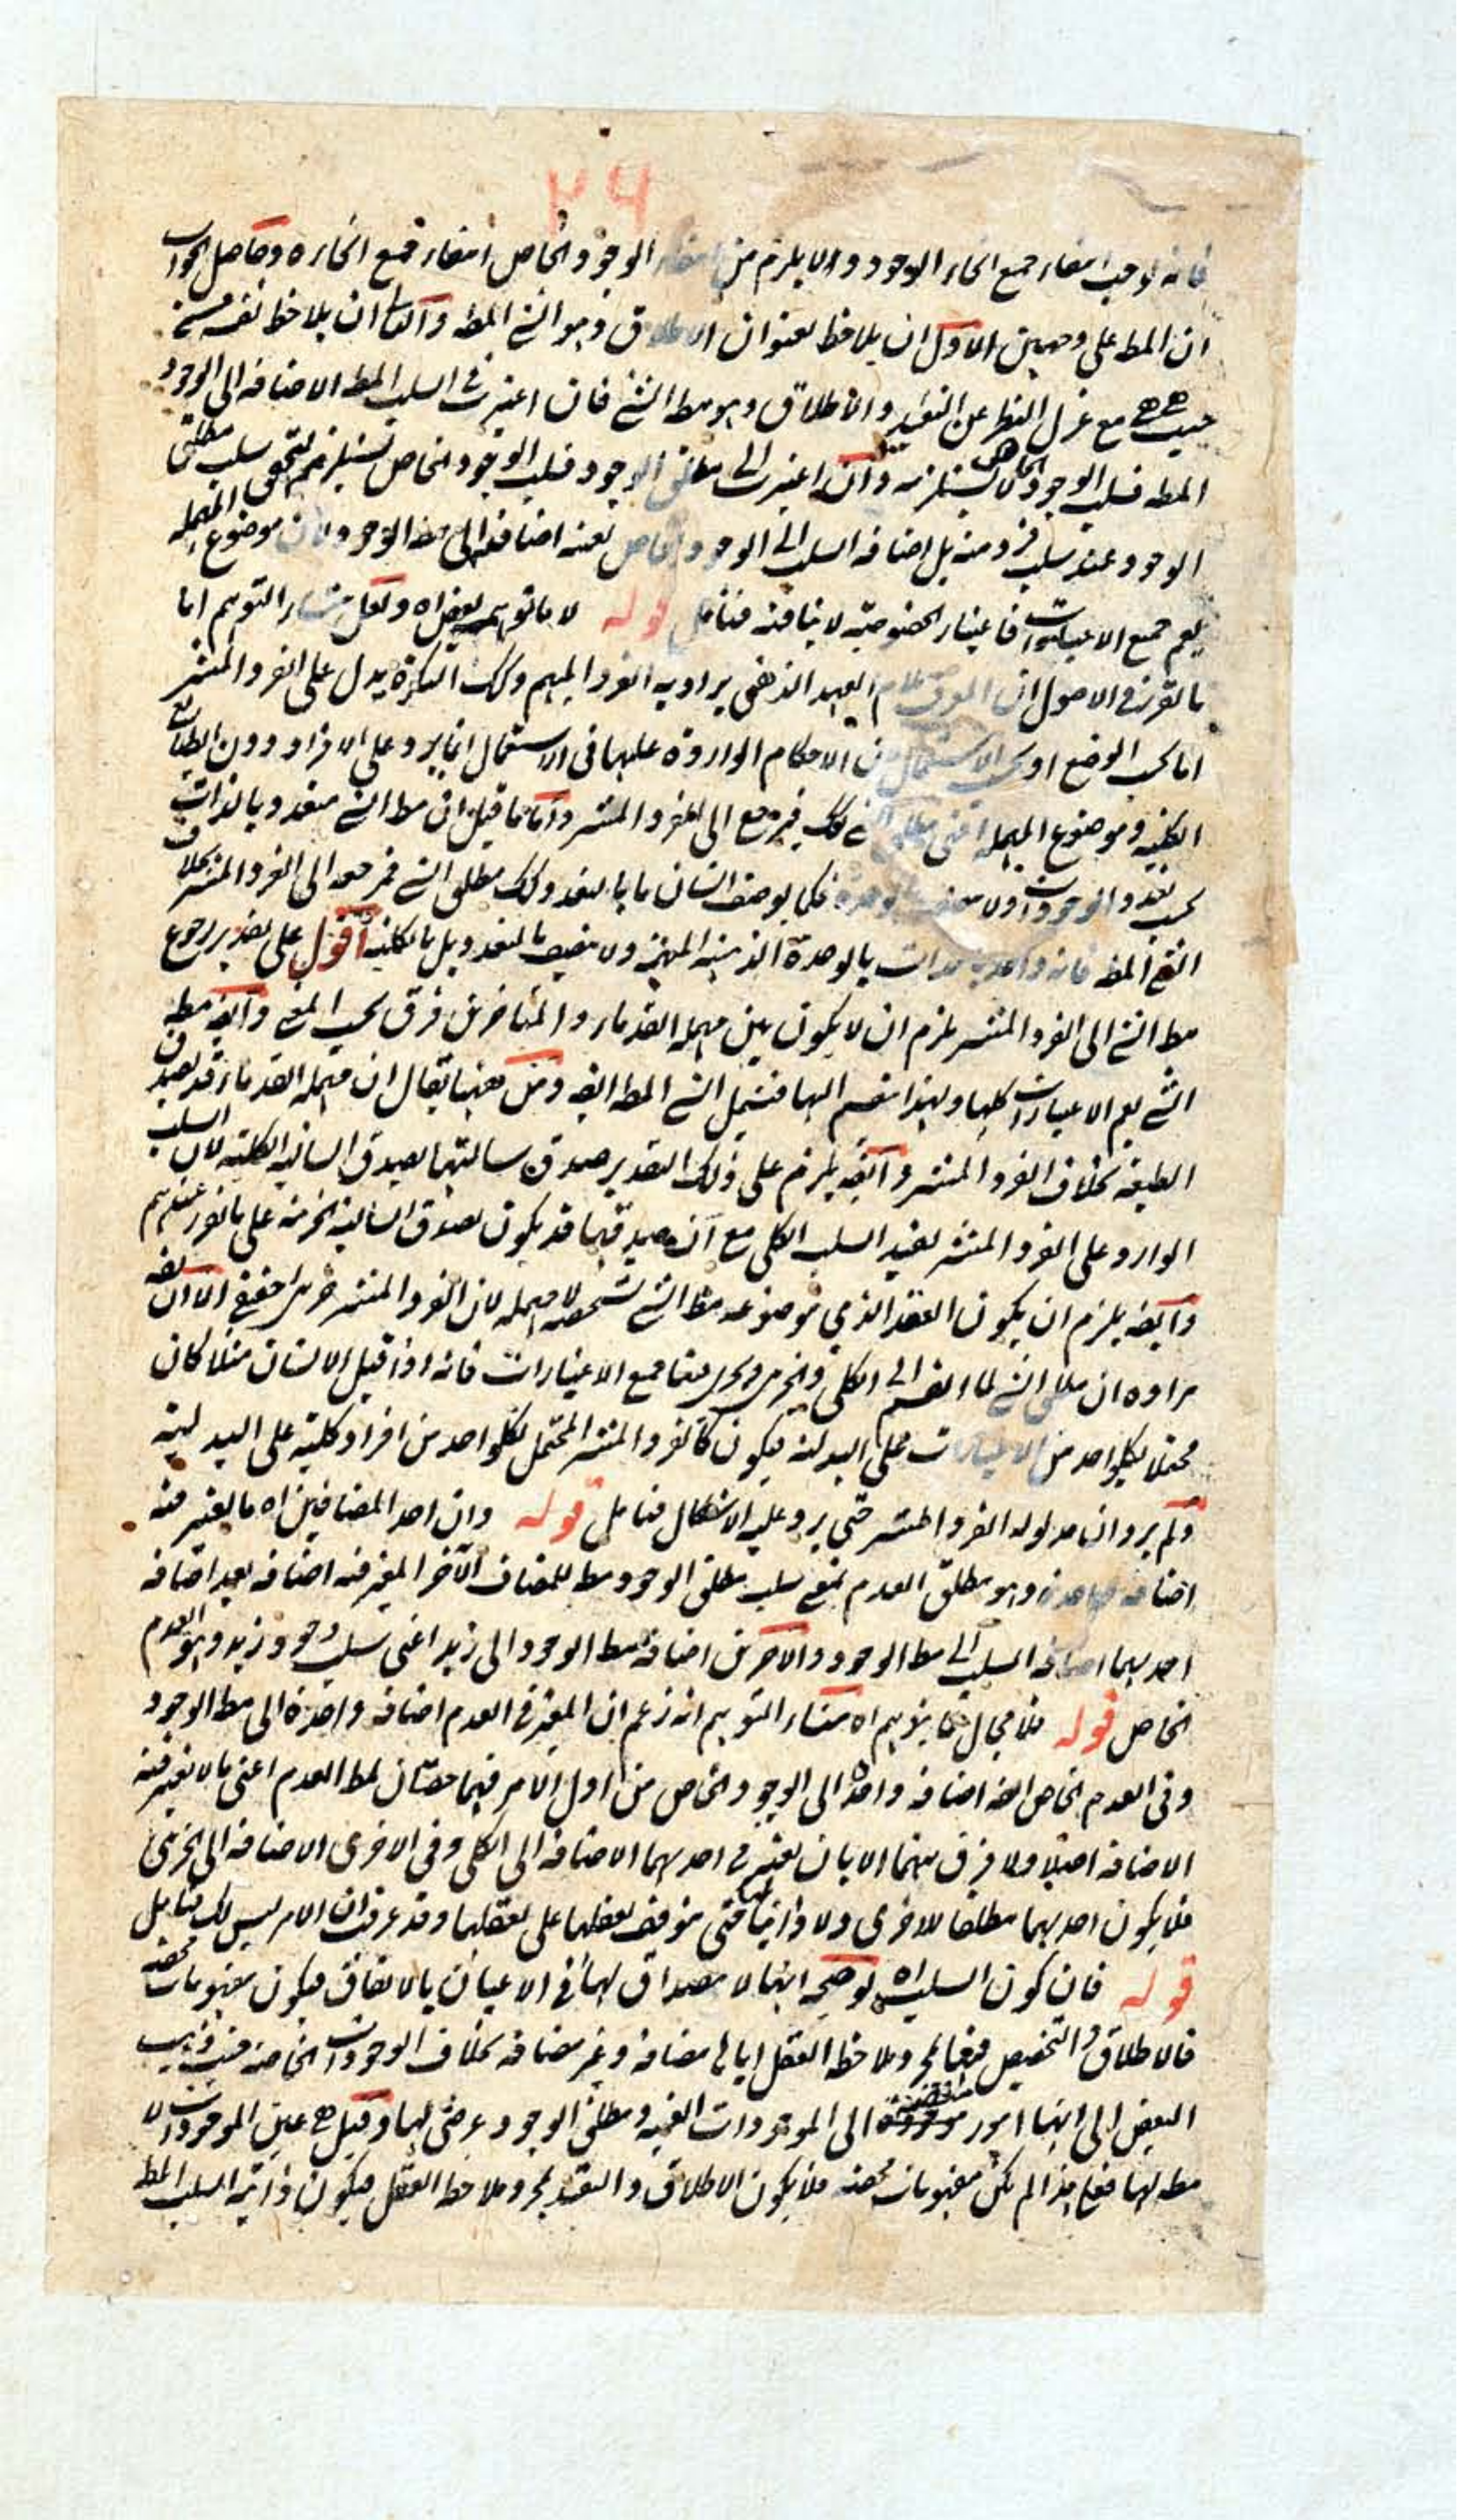 ٢٩
فانه لا يجب انتفاء جميع انحاء الوجود والا يلزم من انتفاء الوجود الخاص انتفاء جميع انحاءه وحاصل الجواب
ان المط على وجهين الاول ان يلاحظ بعنوان الاطلاق وهو الشئ المطه والثانى ان يلاحظ نفسه من
حيث هى هى مع عزل النظر عن التقييد والاطلاق وهو مط الشئ فان اعتبرت فى السلب المط الاضافة الى الوجود
المطه فسلب الوجود الخاص لا يستلزمه وان اعتبرت الى مطلق الوجود فسلب الوجود الخاص يستلزم لتحقق سلب مطلق
الوجود عند سلب فرد منه بل اضافة السلب الى الوجود الخاص بعينه اضافة الى مط الوجود لان موضوع المهملة
يعم جميع الاعتبارات فاعتبار الخصوصية لا ينافيه فتامل قوله لا ما توهم بعض اه ولعل منشاء التوهم اما
ما تقرر فى الاصول ان المعرف بلام العهد الذهنى يراد به الفرد المبهم وكك النكرة يدل على الفرد المنتشر
اما بحسب الوضع او بحسب الاستعمال من الاحكام الواردة عليها فى الاستعمال انما يرد على الافراد دون الطبائع
الكلية وموضوع المهملة اعنى مطلق الشئ كك فيرجع الى الفرد المنتشر واما ما قيل ان مط الشئ متعدد بالذات
بحسب تعدد الوجودات ولا بالوحدة فكما يوصف انسان ما بالتعدد وكك مطلق الشئ فمرجعه الى الفرد المنتشر بخلاف
الشئ المطه فانه واحد بالذات بالوحدة الذهنية المبهمة ولا يتصف بالتعدد بل بالكلية اقول على تقدير رجوع
مط الشئ الى الفرد المنتشر يلزم ان لا يكون بين مهملة القدماء والمتاخرين فرق بحسب المعنى وايضه مط
الشئ يعم الاعتبارات كلها ولهذا ينقسم اليها فيشمل الشئ المطه ايضه ومن ههنا يقال ان مهملة القدماء قد يصدق
الطبيعة بخلاف الفرد المنتشر وايضه يلزم على ذلك التقدير صدق سالبتها بصدق السالبة الكلية لان السلب
الوارد على الفرد المنتشر يفيد السلب الكلى مع ان صدقها قد يكون بصدق السالبة الجزئية على ما تقرر عندهم
وايضه يلزم ان يكون العقد الذى موضوعه مط الشئ شخصية لا مهملة لان الفرد المنتشر جزئى حقيقى الا ان يقه
مراده ان مطلق الشئ لما انقسم الى الكلى والجزئى وجرى مع جميع الاعتبارات فانه اذا قيل الانسان مثلا كان
محتملا لكل واحد من الاعتبارات على البدلية فيكون كالفرد المنتشر المحتمل لكل واحد من افراد كلية على البدلية
ولم يرد ان مدلوله الفرد المنتشر حتى يرد عليه الاشكال فتامل قوله وان احد المضافين اه ما يعتبر فيه
اضافة واحدة وهو مطلق العدم بمعنى سلب مطلق الوجود مط للمضاف الآخر المعتبر فيه اضافة بعد اضافة
احدهما اضافة السلب الى مط الوجود والاخرى اضافة مط الوجود الى زيد اعنى سلب وجود زيد وهو العدم
الخاص قوله فلا مجال لما يتوهم اه منشاء التوهم انه زعم ان المعتبر فى العدم اضافة واحدة الى مط الوجود
وفى العدم الخاص ايضه اضافة واحدة الى الوجود الخاص من اول الامر فهما حصتان لمط العدم اعنى ما لا يعتبر فيه
الاضافة اصلا ولا فرق بينهما الا بان يعتبر فى احدهما الاضافة الى الكلى وفى الاخرى الاضافة الى الجزئى
فلا يكون احدهما مطلقا للاخرى ولا ذاتيا لها حتى يتوقف تعقلها على تعقلها وقد عرفت ان الامر ليس كك فتامل
قوله فان كون السلب اه توضيحه انها لا مصداق لها فى الاعيان بالاتفاق فيكون مفهومات محضة
فالاطلاق والتخصيص فيها بمجرد ملاحظة العقل اياها مضافة وغير مضافة بخلاف الوجودات الخاصة فيذهب
البعض الى انها امور منضمة الى الموجودات العينية ومطلق الوجود عرضى لها وقيل هى عين الموجودات لا
مط لها فعلى هذا لم تكن مفهومات محضة فلا يكون الاطلاق والتقييد بمجرد ملاحظة العقل فيكون ذاتية السلب المط